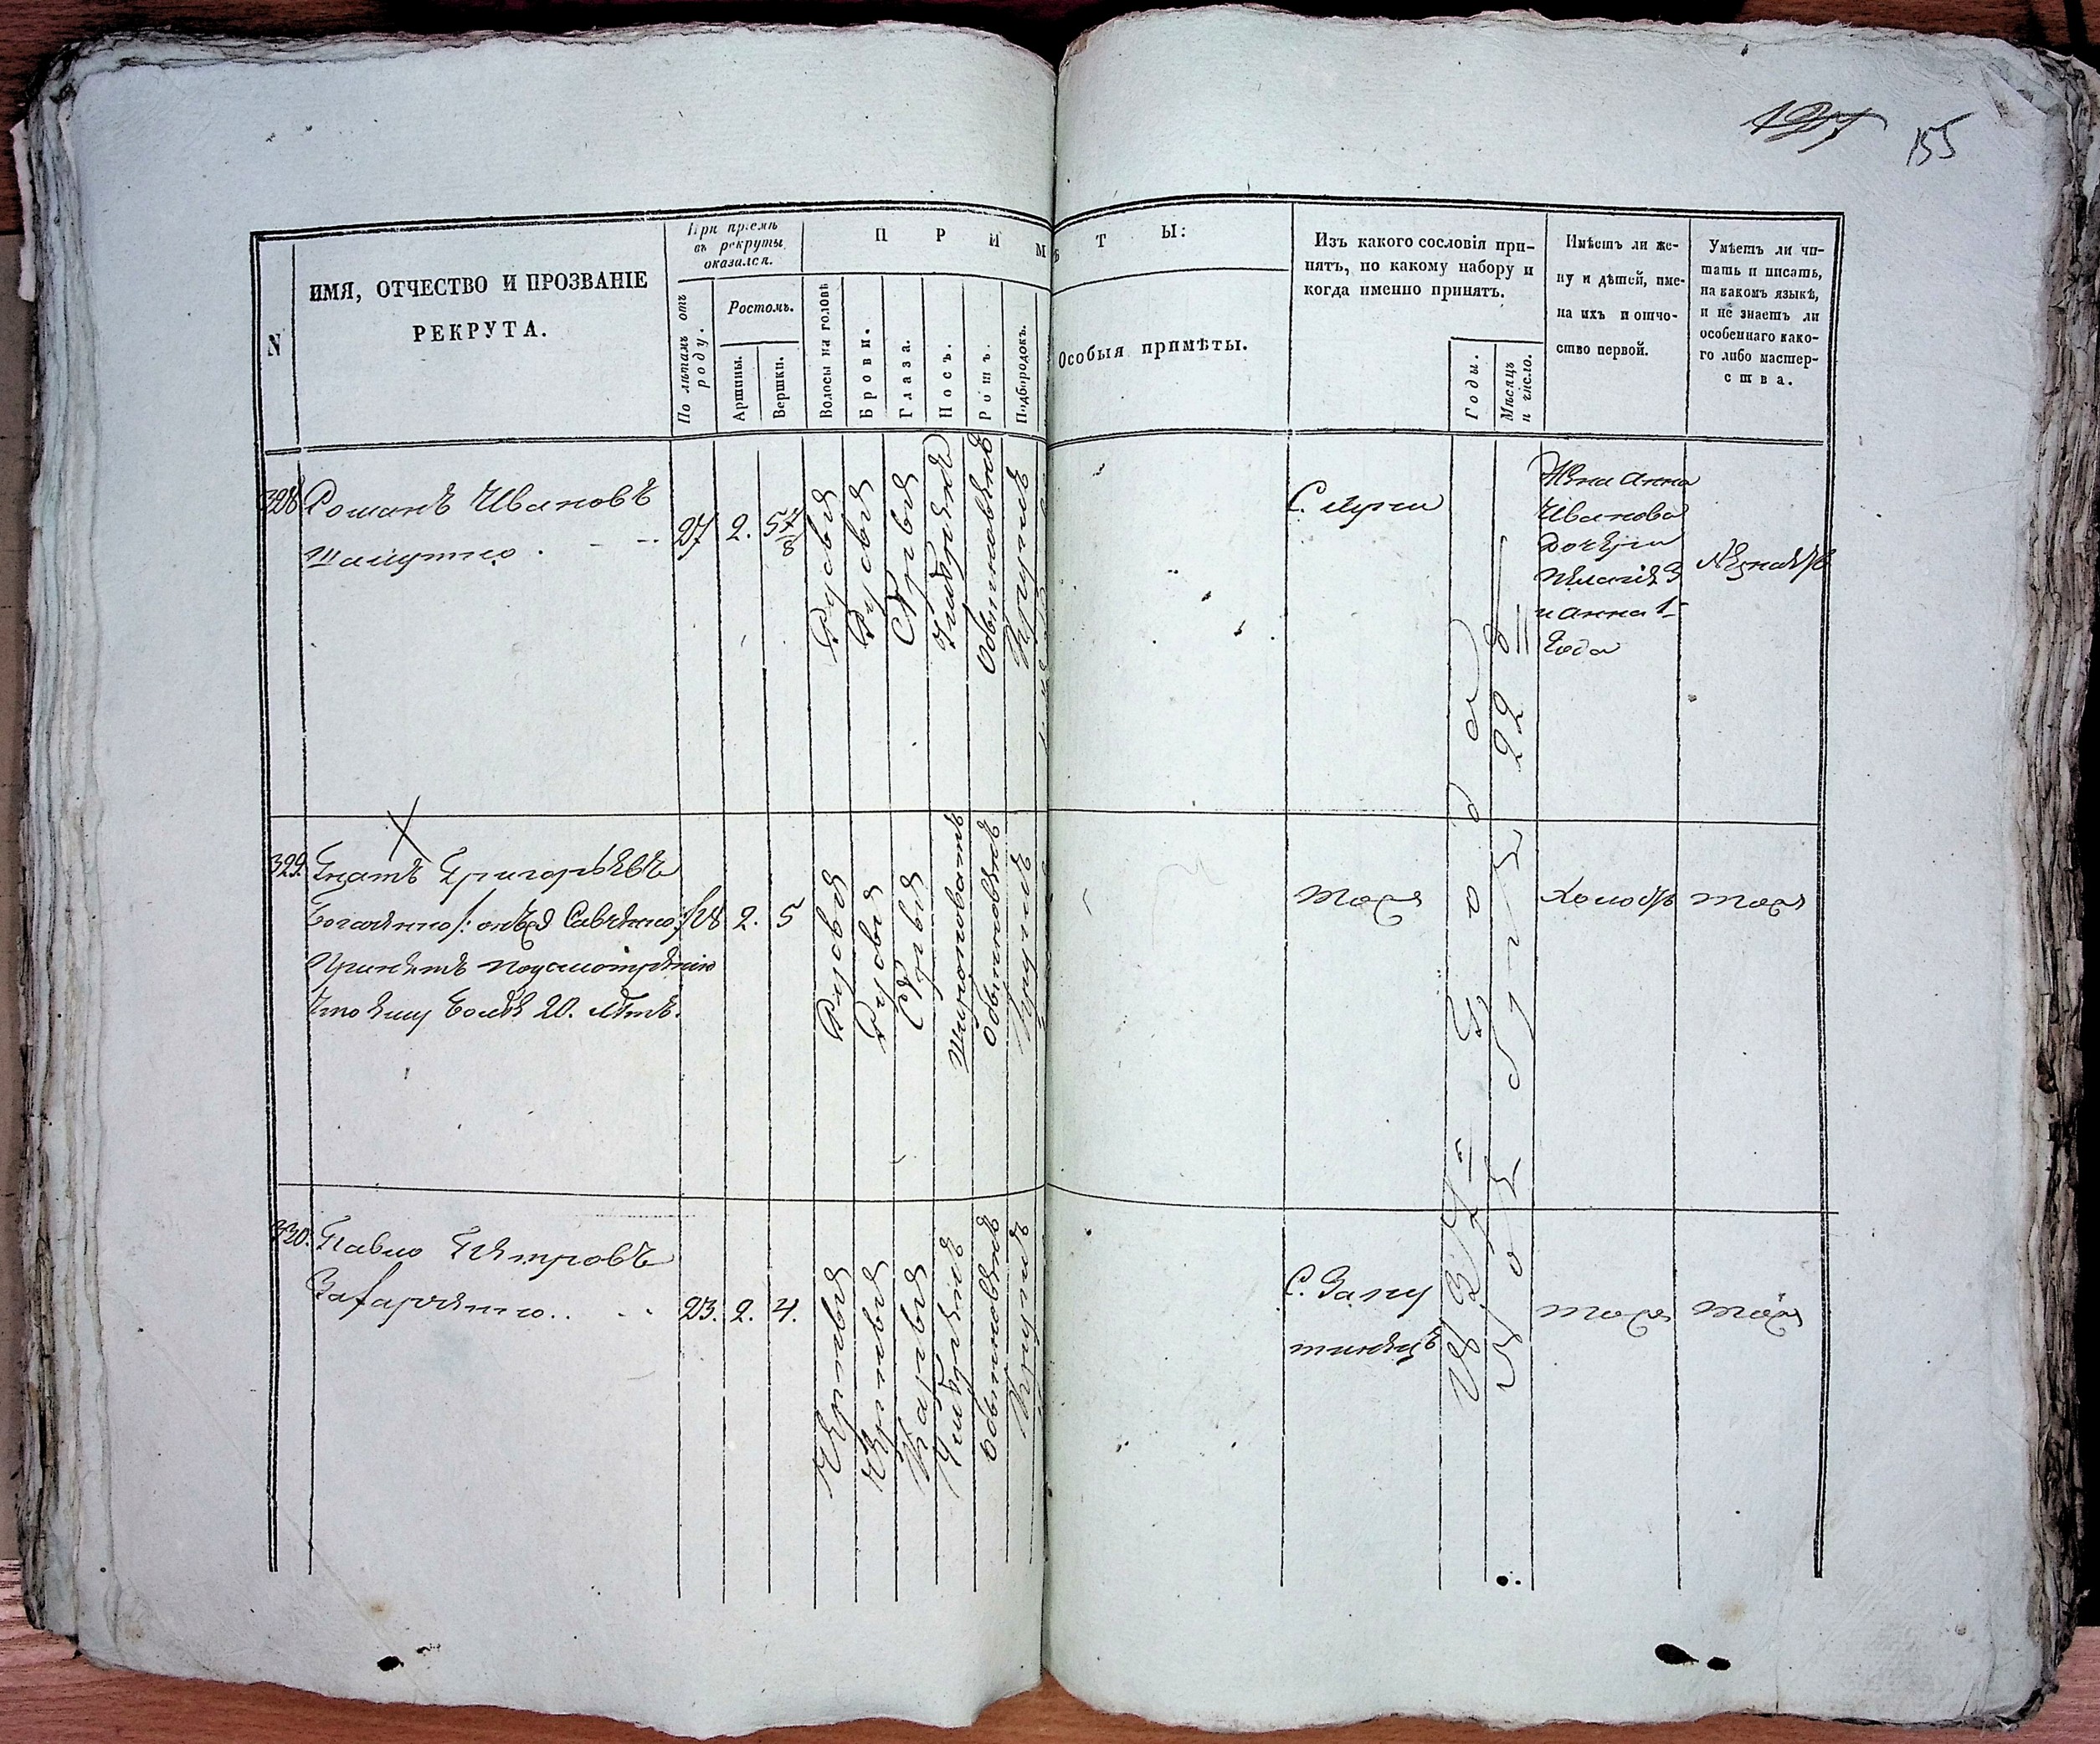 155
N
ИМЯ, ОТЧЕСТВО И ПРОЗВАНІЕ
РЕКРУТА.
При пріемѣ
въ рекруты
оказался.
По лѣтамъ отъ
роду.
Ростомъ.
Аршины.
Вершки.
П Р И М
Волосы на головѣ
Брови.
Глаза.
Носъ.
Ротъ.
Подбородокъ.
ѣ Т Ы:
Особыя примѣты.
Изъ какого сословія при-
нятъ, по какому набору и
когда именно принятъ.
Годы.
Мѣсяцъ
и число.
Имѣетъ ли же-
ну и дѣтей, име-
на ихъ и отче-
ство первой.
Умѣетъ ли чи-
тать и писать,
на какомъ языкѣ,
и не знаетъ ли
особеннаго како-
го либо мастер-
ства.
328
Романъ Ивановъ
27
2.
5 7/8
Русыя
Русыя
Сѣрыя
Умѣренъ
Обыкновенъ
Круглъ
С.
Жена Анна
Иванова
дочери
Пелагея 3
и Анна 1
года
Незнаетъ
329.
Игнатъ Григорьевъ
Богаченко /: онъже Савченко :/
Принятъ по усмотрѣнію
что ему болѣе 20. лѣтъ.
18
2.
5
Русыя
Русыя
Сѣрыя
Широковатъ
Обыкновенъ
Круглъ
Тоже
Холостъ
Тоже
330.
Павло Петровъ
Захарченко..
23.
2.
4.
Черныя
Черныя
Карыя
Умѣренъ
Обыкновенъ
Круглъ
С. Запу
тинецъ
Тоже
Тоже
года
22